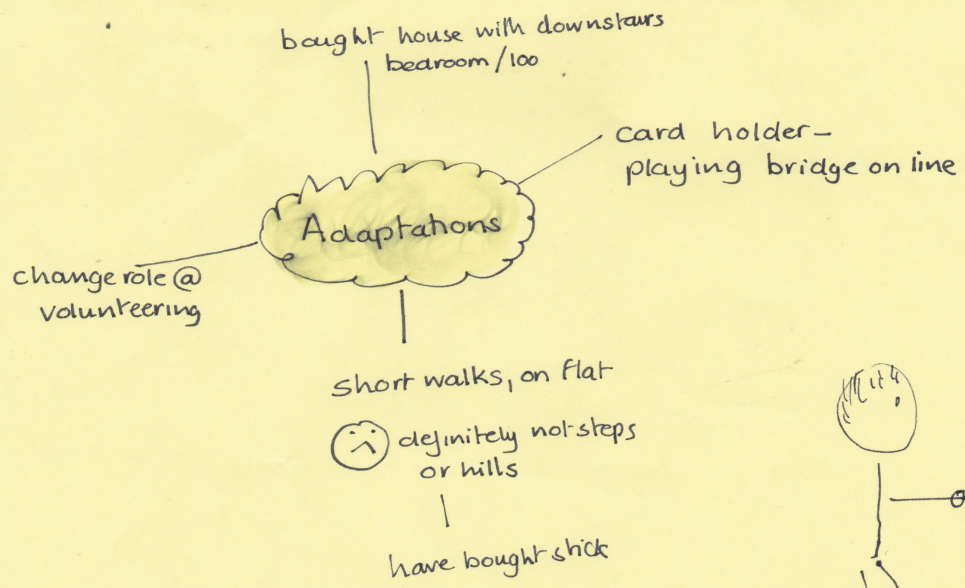 bought house with downstairs
bedroom/loo
card holder-
playing bridge on line
Adaptations
change role @
volunteering
short walks, on flat
definitely not steps
or hills
have bought stick